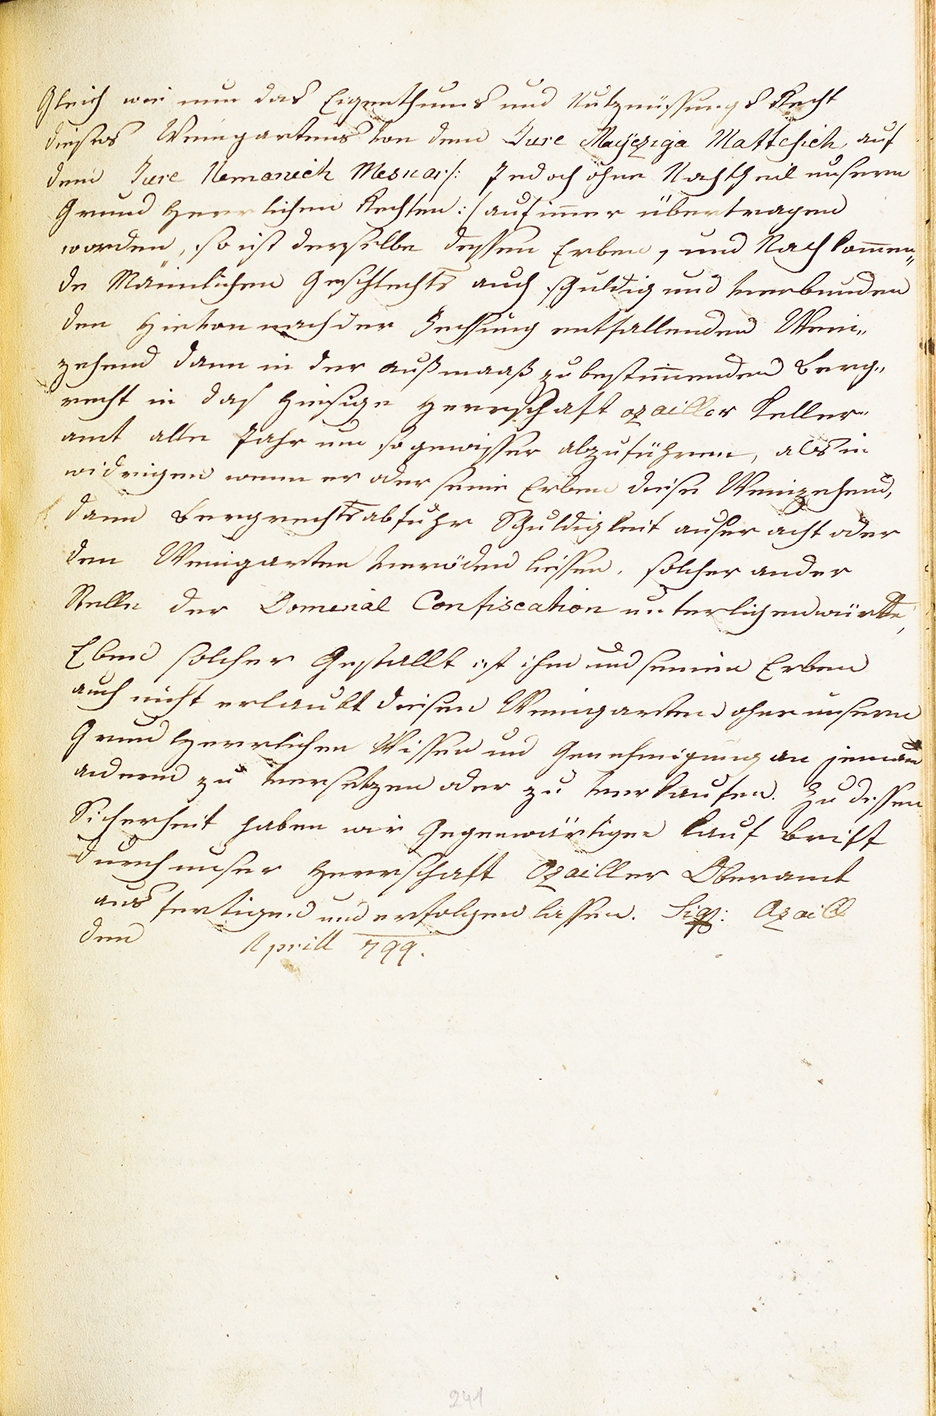 Gleich wie nun das Eigenthums und Nutznüssungs Recht
dieses Weingartens von dem Jure Mattesich auf
dem Jure Nemanich Mesnar /: Jedoch ohne Nachtheil unsern
Grund Herrlichen Rechten :/ auf immer übertragen
worden, so ist derselbe dessen Erben, und Nachkommen„
de Mäinlichen Geschlechts auch schuldig und verbunden
den hievon nach der Fechsung entfallenden Wein„
zehend dann in der Außmaaß zu bestimmenden Berg„
recht in das hiesige Herrschaft ozailler Keller„
amt alle Jahr um so gewisser abzuführen, als in
widrigen wenn er oder seine Erben diese Weinzehend,
dann Bergrechtsabfuhr Schuldigkeit auser acht oder
den Weingarten veröden liessen, solcher an der
Stelle der Domenial Confiscation unterlichen württe,
Eben solcher Gestallt ist ihm und seinen Erben
auch nicht erlaubt diesen Weingarten ohne unsern
Grund Herrlichen Wissen und Genehmigung an jemand
andern zu versetzen oder zu verkaufen. Zu dessen
Sicherheit haben wir Gegenwärtigen Kauf Brift
durch unser Herrschaft Ozailler Oberamt
ausfertigen und erfolgen lassen. Sig: Ozaill
den Aprill 799.
241